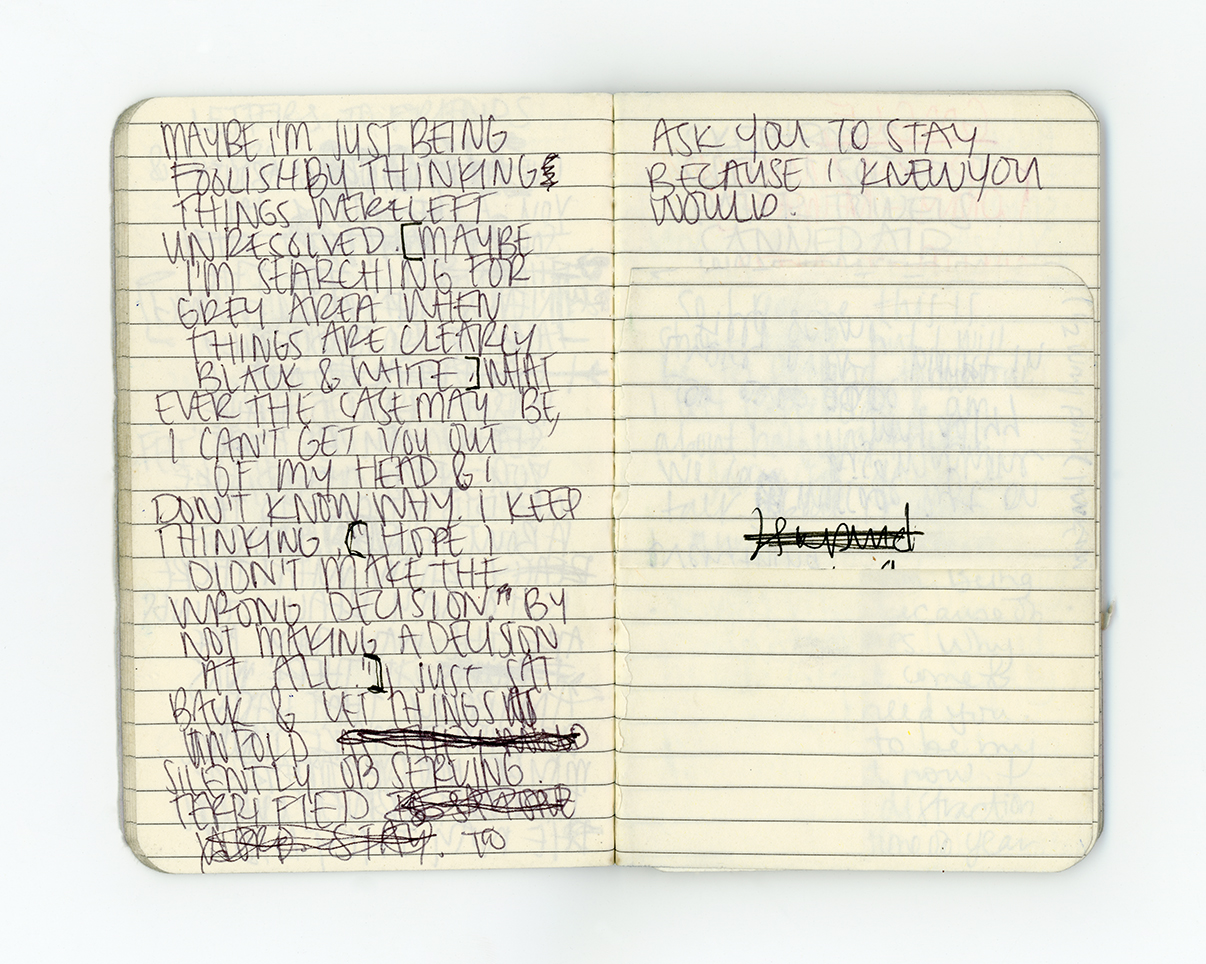 MAYBE I'M JUST BEING
FOOLISH BY THINKING
THINGS WERE LEFT
UNRESOLVED. [MAYBE
I'M SEARCHING FOR
GREY AREA WHEN
THINGS ARE CLEARLY
BLACK & WHITE.] WHAT
EVER THE CASE MAY BE,
I CAN'T GET YOU OUT
OF MY HEAD & I
DON'T KNOW WHY. I KEEP
THINKING, [I HOPE I
DIDN'T MAKE THE
WRONG DECISION." BY
NOT MAKING A DECISION
AT ALL.] I JUST SAT
BACK & LET THINGS
UNFOLD
SILENTLY OBSERVING.
TERRIFIED
TO
ASK YOU TO STAY
BECAUSE I KNEW YOU
WOULD.